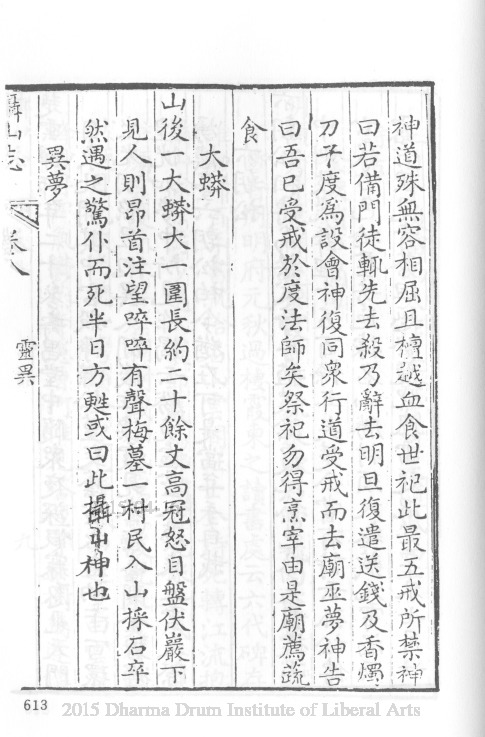 神道殊無容相屈且檀越血食世祀此最五戒所禁神
曰若備門徒輒先去殺乃辭去明旦復遣送錢及香燭
刀子度爲設會神復同衆行道受戒而去廟巫夢神告
曰吾已受戒於度法師矣祭祀勿得烹宰由是廟薦蔬
食
大蟒
山後一大蟒大一圍長約二十餘丈高冠怒目盤伏巖下
見人則昂首注望啐啐有聲梅墓一村民入山採石卒
然遇之驚仆而死半日方甦或曰此攝山神也
異夢
攝山志
卷八
靈異
613
2015 Dharma Drum Institute of Liberal Arts